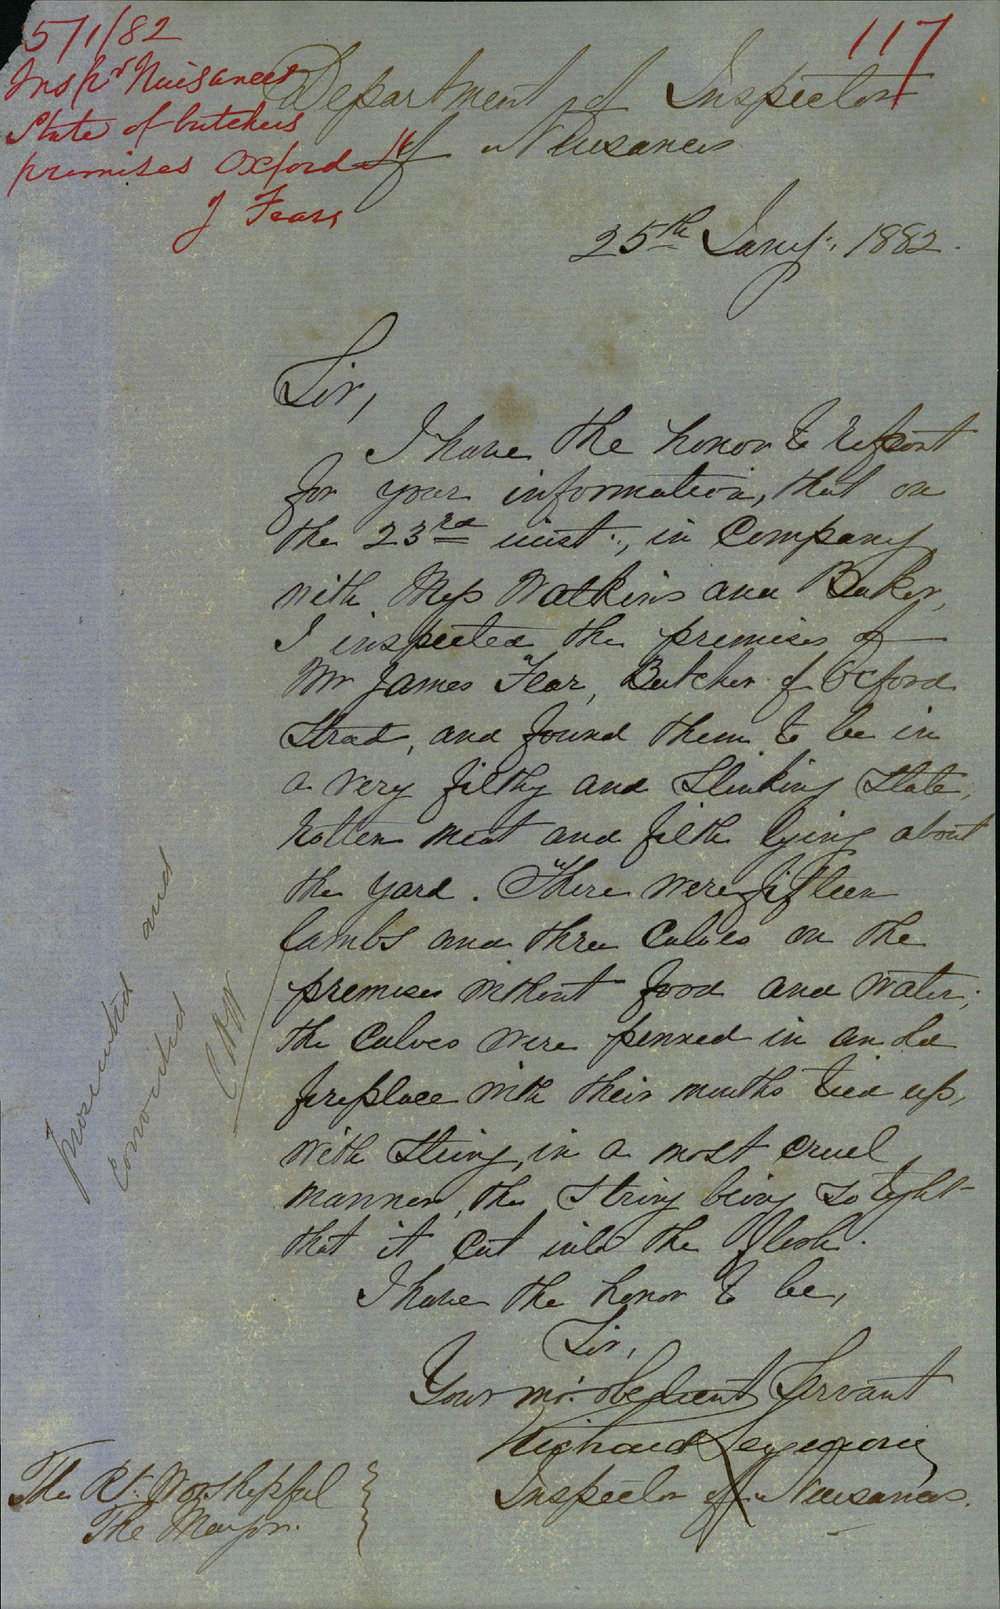 5/1/82
Inspr Nuisances
State of butchers
premises Oxford St
J Fears
117
Department of Inspector
of Nuisances
25th Jany., 1882.
Sir,
I have the honor to report
for your information, that on
the 23rd inst., in Company
with Mess Watkins and Baker,
I inspected the premises of
Mr James Fear, Butcher of Oxford
Street, and found them to be in
a very filthy and Stinking State,
rotten meat and filth lying about
the yard. There were fifteen
lambs and three Calves on the
premises without food and water;
the Calves were penned in an old
fireplace with their mouths tied up,
with String, in a most cruel
manner, the String being so tight
that it cut into the flesh.
I have the honor to be,
Sir,
Your mo. obedient Servant
Richard Seymour
Inspector of Nuisances.
The Rt. Worshipful
The Mayor.
prosecuted and
convicted